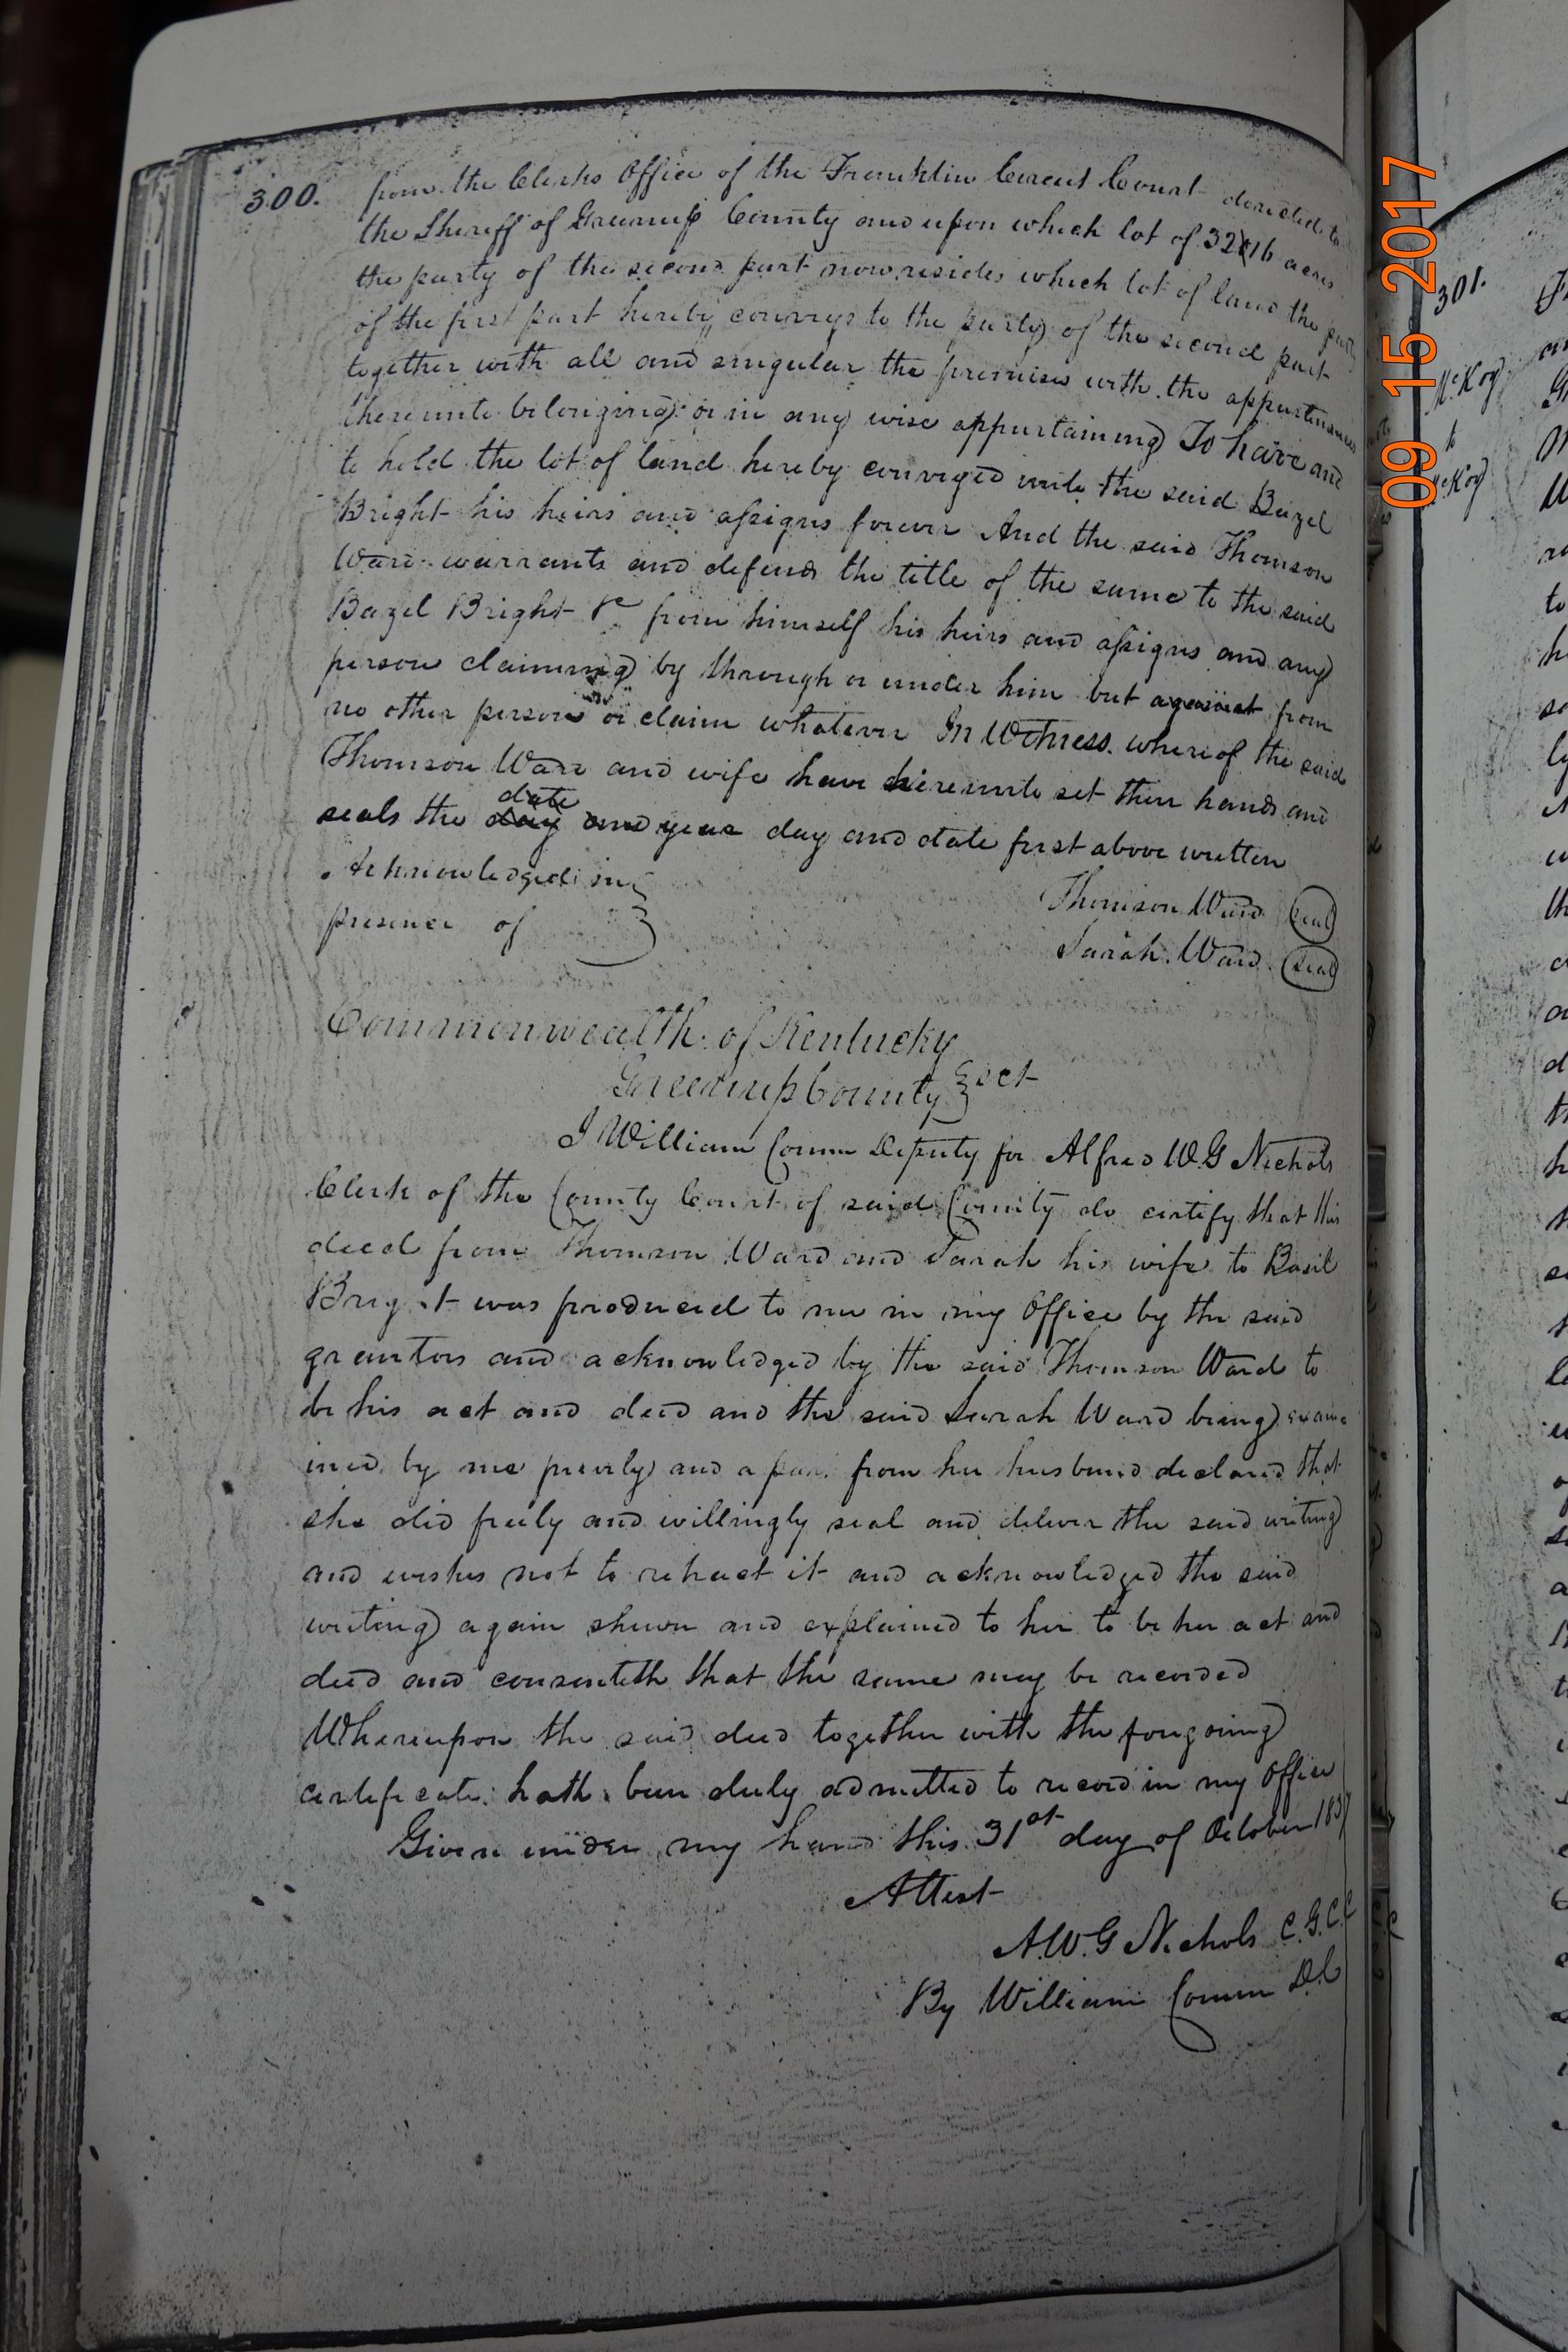 300.
from the Clerks Office of the Franklin Circuit Court directed to
the Sheriff of Greenup County and upon which lot of 32 16 acres
the party of the second part now resides which lot of land the party
of the first part hereby conveys to the party of the second part
together with all and singular the premises with the appurtenances
thereunto belonging or in any wise appurtaining To have and
to hold the lot of land hereby conveyed unto the said Bazel
Bright his heirs and assigns forever And the said Thomson
Ward warrants and defends the title of the same to the said
Bazel Bright &c from himself his heirs and assigns and any
person claiming by through or under him but against from
no other person or claim whatever In Witness whereof the said
Thomson Ward and wife have hereunto set their hands and
date
seals the day and year day and date first above written
Acknowledged in
presence of
Thomson Ward seal
Sarah Ward seal
Commonwealth of Kentucky
Greenup County sct
I William Corum Deputy for Alfred W.G Nichols
Clerk of the County Court of said County do certify that this
deed from Thomson Ward and Sarah his wife to Basil
Bright was produced to me in my Office by the said
grantors and acknowledged by the said Thomson Ward to
be his act and deed and the said Sarah Ward being exam
ined by me privily and apart from her husband declared that
she did freely and willingly seal and deliver the said writing
and wishes not to retract it and acknowledged the said
writing again shewn and explained to her to be her act and
deed and consenteth that the same may be recorded
Whereupon the said deed together with the forgoing
certificate hath been duly admitted to record in my Office
Given under my hand this 31st day of October 1837
Attest
A.W.G Nichols C.G.C.C
By William Corum D.C
09 15 2017
301.
McKoy
to
McKoy